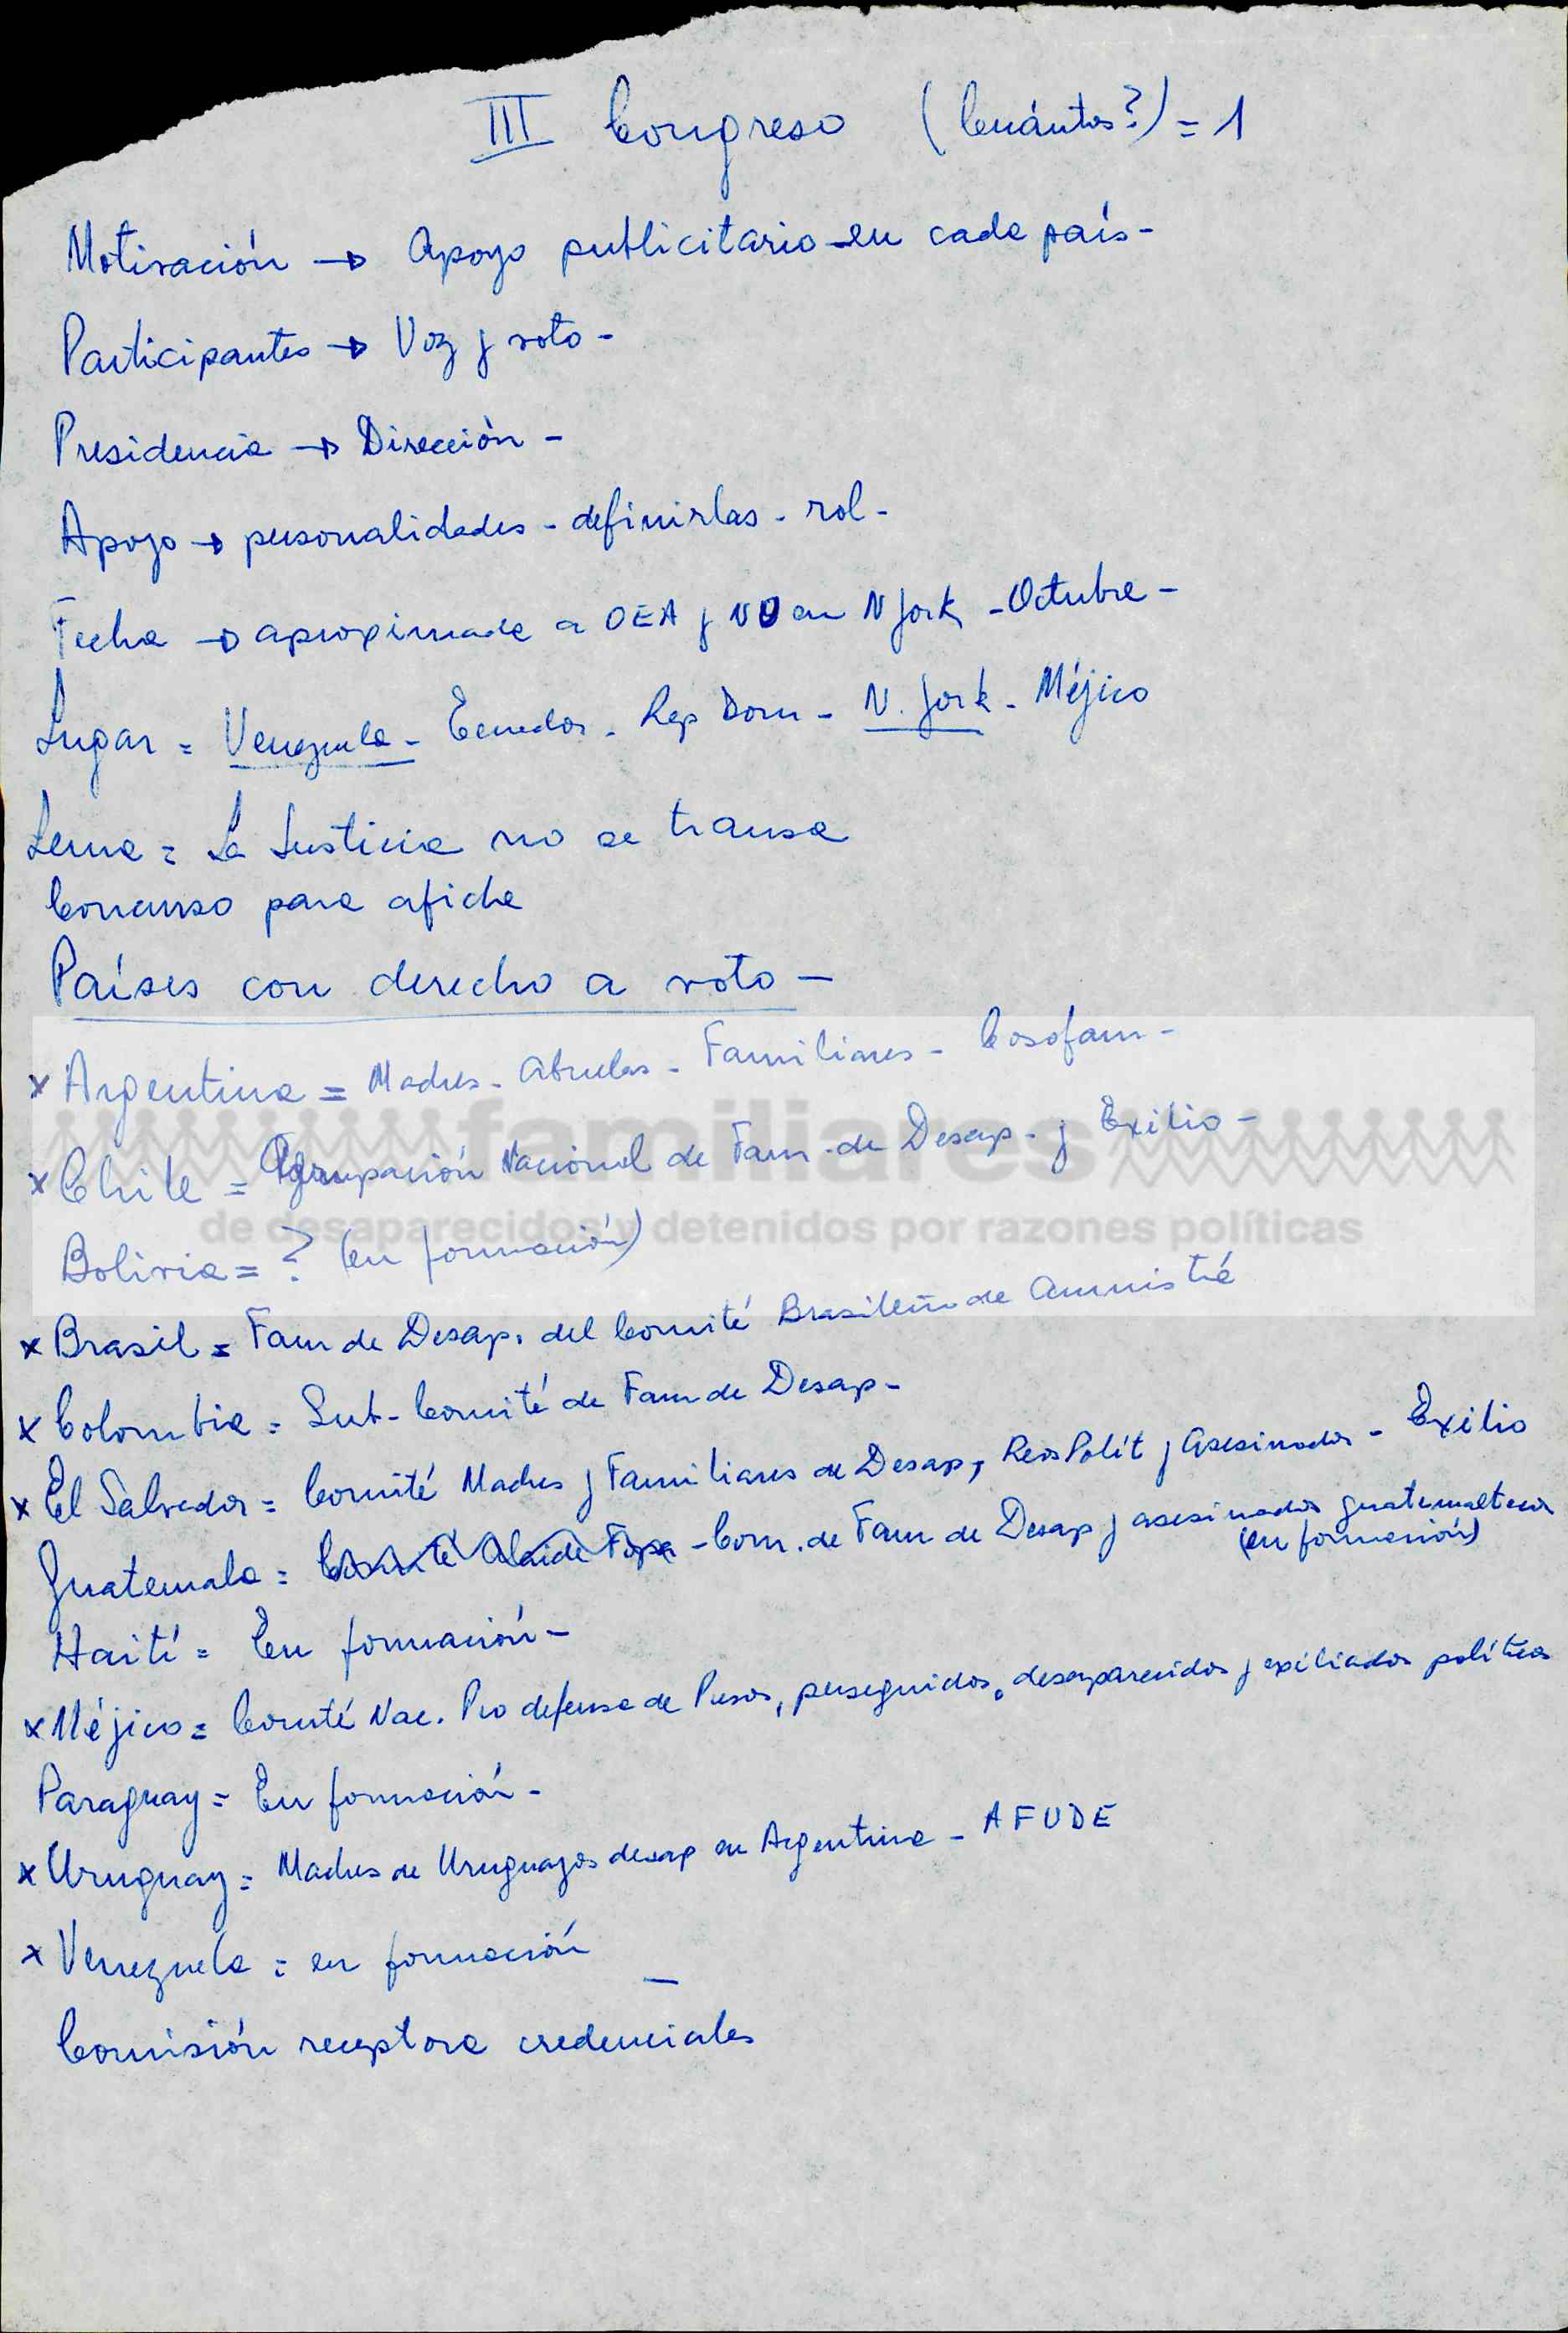 III Congreso (Cuántos?) = 1
Motivación → Apoyo publicitario en cada país -
Participantes → Voz y voto -
Presidencia → Dirección -
Apoyo → personalidades - definirlas - rol -
Fecha → aproximada a OEA y NU en N York - Octubre -
Lugar = Venezuela - Ecuador - Rep Dom - N. York - Méjico
Lema = La Justicia no se transa
Concurso para afiche
Países con derecho a voto -
x Argentina = Madres - Abuelas - Familiares - Cosofam -
familiares
x Chile = Agrupación Nacional de Fam. de Desap. y Exilio -
de desaparecidos y detenidos por razones políticas
Bolivia = ? (en formación)
x Brasil = Fam de Desap. del Comité Brasileño de Amnistía
x Colombia = Sub-Comité de Fam de Desap -
x El Salvador = Comité Madres y Familiares de Desap, Reos Polít y Asesinados - Exilio
Guatemala = Comité Alaide Fopa - Com. de Fam de Desap y asesinados guatemaltecos
(en formación)
Haití = En formación -
x Méjico = Comité Nac. Pro defensa de Presos, perseguidos, desaparecidos y exiliados políticos
Paraguay = En formación -
x Uruguay = Madres de Uruguayos desap en Argentina - AFUDE
x Venezuela = en formación -
Comisión receptora credenciales